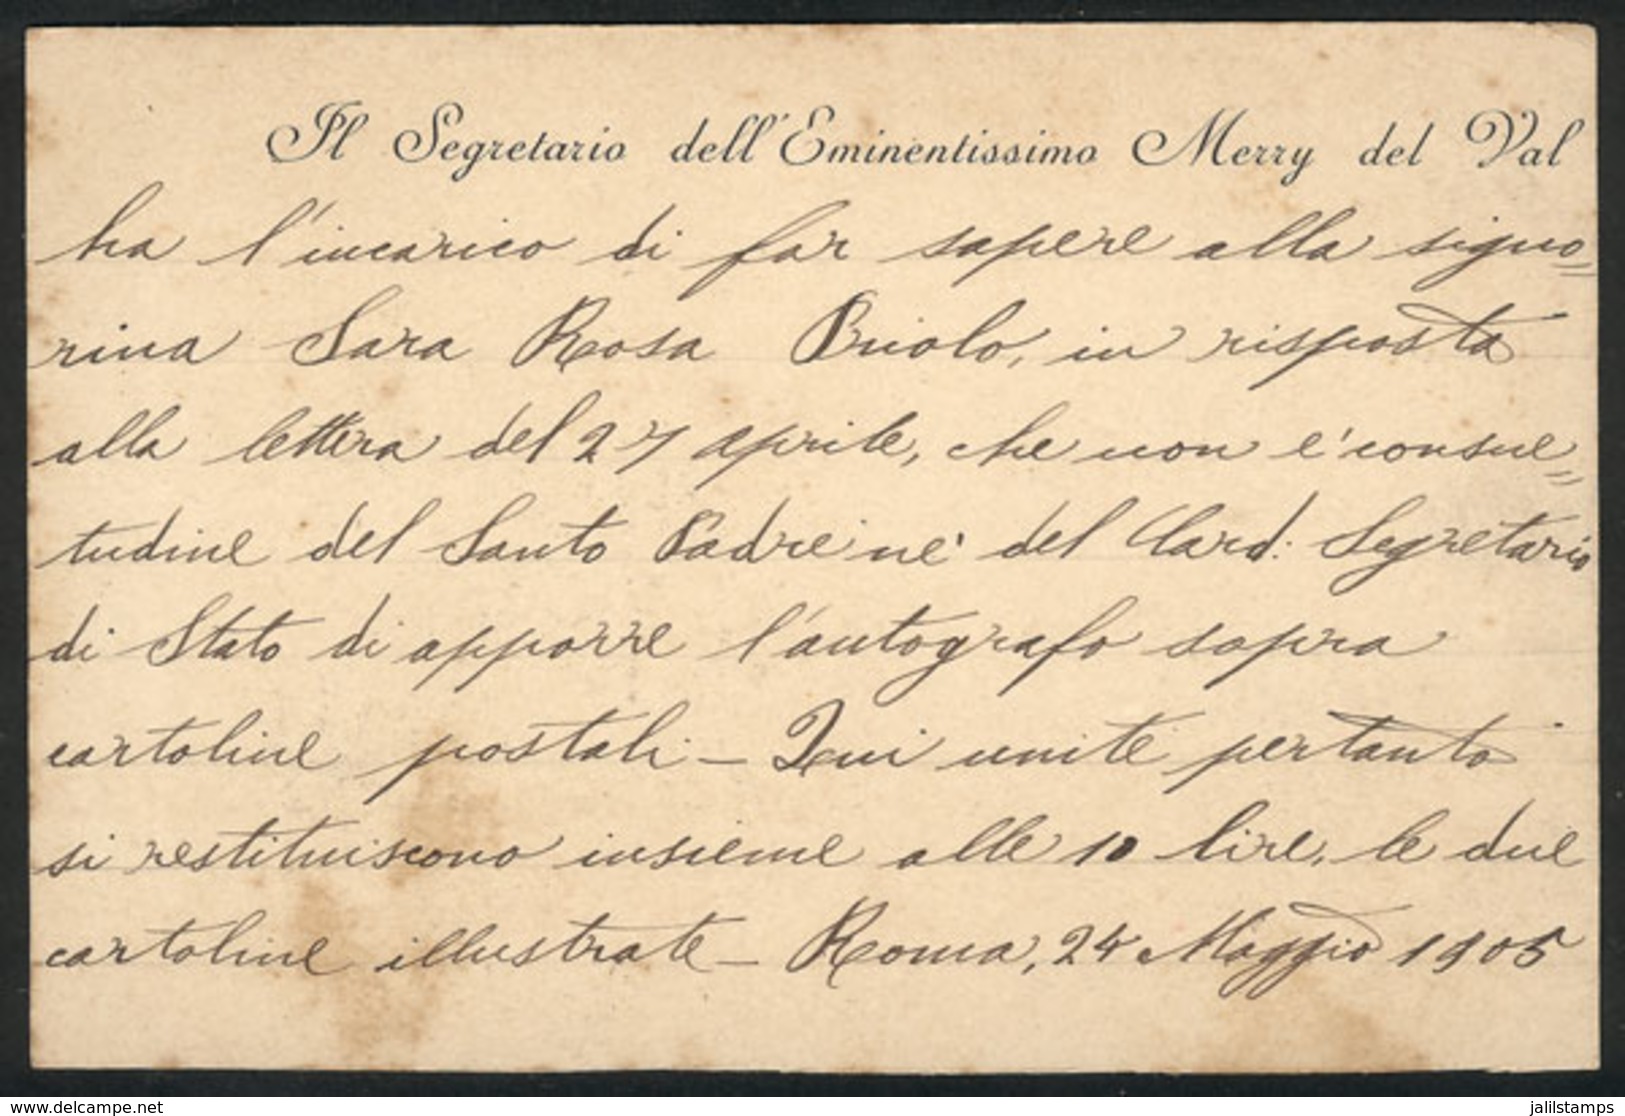 Il Segretario dell'Eminentissimo Merry del Val
ha l'incarico di far sapere alla signo=
rina Sara Rosa Priolo, in risposta
alla lettera del 27 aprile, che non e' consue=
tudine del Santo Padre ne' del Card. Segretario
di Stato di apporre l'autografo sopra
cartoline postali – Qui unite pertanto
si restituiscono insieme alle 10 lire, le due
cartoline illustrate – Roma, 24 Maggio 1905
delcampe.net
jalilstamps